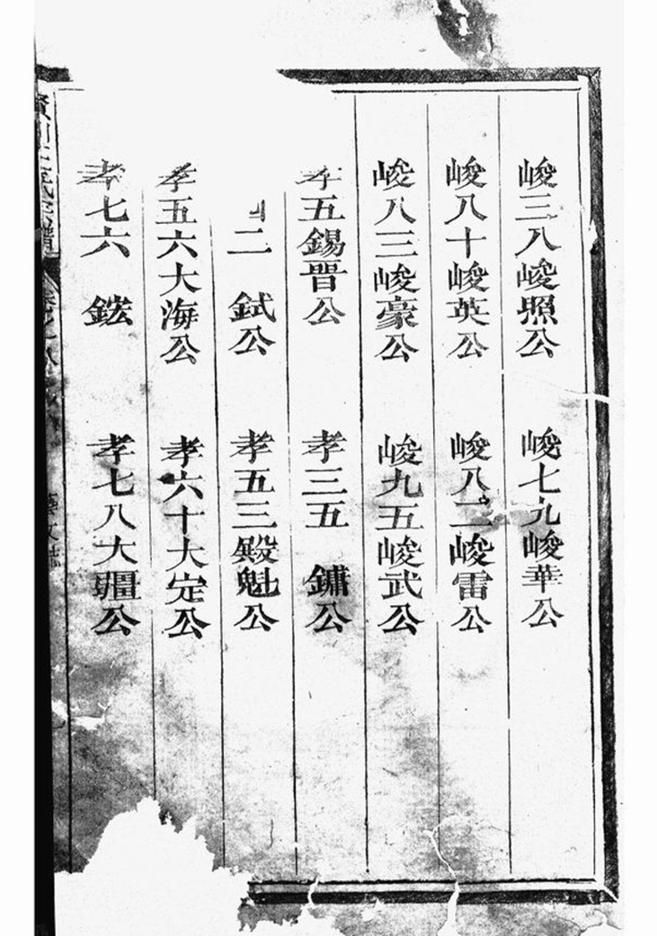 峻三八峻照公 峻七九峻華公
峻八十峻英公 峻八二峻雷公
峻八三峻豪公 峻九五峻武公
孝五錫晋公 孝三五 鏞公
二 鉽公 孝五三殿魁公
孝五六大海公 孝六十大定公
孝七六 鋐 孝七八大疆公
氏宗譜 卷之 藝文誌